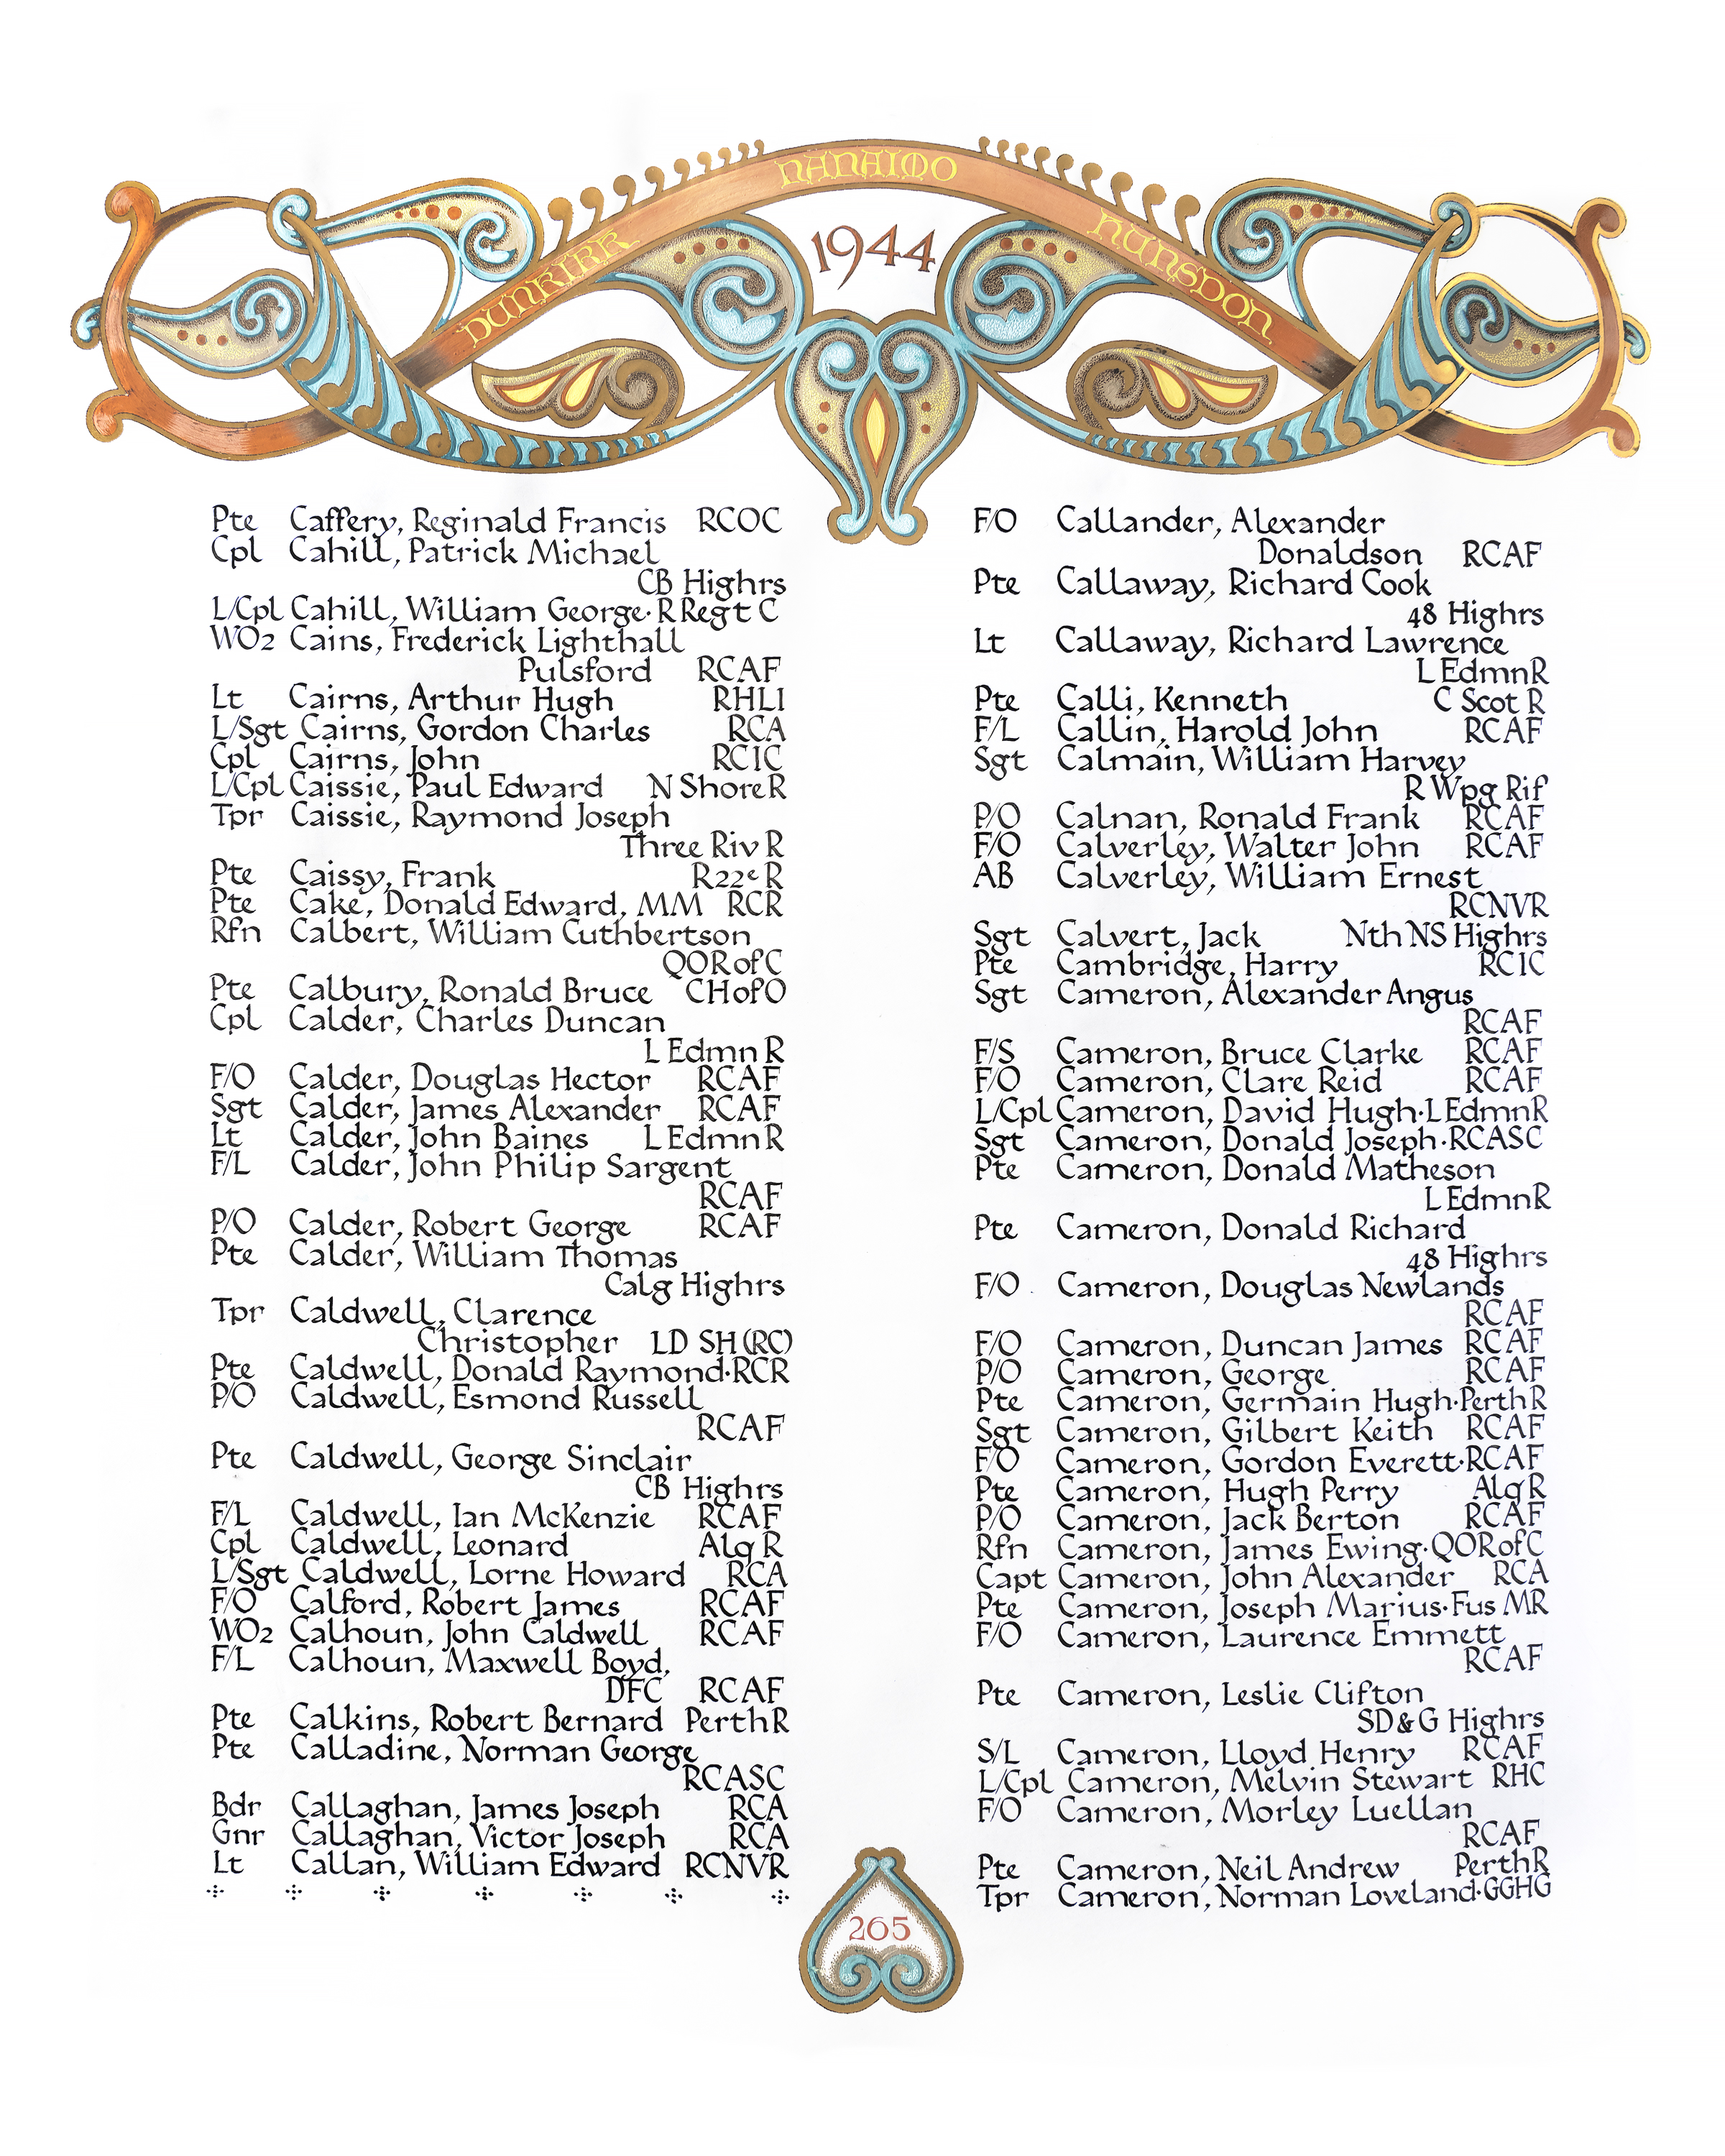 DUNKIRK
NANAIMO
HUNSDON
1944
Pte Caffery, Reginald Francis RCOC
Cpl Cahill, Patrick Michael
CB Highrs
L/Cpl Cahill, William George·R Regt C
WO2 Cains, Frederick Lighthall
Pulsford RCAF
Lt Cairns, Arthur Hugh RHLI
L/Sgt Cairns, Gordon Charles RCA
Cpl Cairns, John RCIC
L/Cpl Caissie, Paul Edward N Shore R
Tpr Caissie, Raymond Joseph
Three Riv R
Pte Caissy, Frank R22e R
Pte Cake, Donald Edward, MM RCR
Rfn Calbert, William Cuthbertson
QOR of C
Pte Calbury, Ronald Bruce CH of O
Cpl Calder, Charles Duncan
L Edmn R
F/O Calder, Douglas Hector RCAF
Sgt Calder, James Alexander RCAF
Lt Calder, John Baines L Edmn R
F/L Calder, John Philip Sargent
RCAF
P/O Calder, Robert George RCAF
Pte Calder, William Thomas
Calg Highrs
Tpr Caldwell, Clarence
Christopher LD SH (RC)
Pte Caldwell, Donald Raymond·RCR
P/O Caldwell, Esmond Russell
RCAF
Pte Caldwell, George Sinclair
CB Highrs
F/L Caldwell, Ian McKenzie RCAF
Cpl Caldwell, Leonard Alq R
L/Sgt Caldwell, Lorne Howard RCA
F/O Calford, Robert James RCAF
WO2 Calhoun, John Caldwell RCAF
F/L Calhoun, Maxwell Boyd,
DFC RCAF
Pte Calkins, Robert Bernard Perth R
Pte Calladine, Norman George
RCASC
Bdr Callaghan, James Joseph RCA
Gnr Callaghan, Victor Joseph RCA
Lt Callan, William Edward RCNVR
F/O Callander, Alexander
Donaldson RCAF
Pte Callaway, Richard Cook
48 Highrs
Lt Callaway, Richard Lawrence
L Edmn R
Pte Calli, Kenneth C Scot R
F/L Callin, Harold John RCAF
Sgt Calmain, William Harvey
R Wpg Rif
P/O Calnan, Ronald Frank RCAF
F/O Calverley, Walter John RCAF
AB Calverley, William Ernest
RCNVR
Sgt Calvert, Jack Nth NS Highrs
Pte Cambridge, Harry RCIC
Sgt Cameron, Alexander Angus
RCAF
F/S Cameron, Bruce Clarke RCAF
F/O Cameron, Clare Reid RCAF
L/Cpl Cameron, David Hugh·L Edmn R
Sgt Cameron, Donald Joseph·RCASC
Pte Cameron, Donald Matheson
L Edmn R
Pte Cameron, Donald Richard
48 Highrs
F/O Cameron, Douglas Newlands
RCAF
F/O Cameron, Duncan James RCAF
P/O Cameron, George RCAF
Pte Cameron, Germain Hugh·Perth R
Sgt Cameron, Gilbert Keith RCAF
F/O Cameron, Gordon Everett·RCAF
Pte Cameron, Hugh Perry Alq R
P/O Cameron, Jack Berton RCAF
Rfn Cameron, James Ewing·QOR of C
Capt Cameron, John Alexander RCA
Pte Cameron, Joseph Marius·Fus MR
F/O Cameron, Laurence Emmett
RCAF
Pte Cameron, Leslie Clifton
SD & G Highrs
S/L Cameron, Lloyd Henry RCAF
L/Cpl Cameron, Melvin Stewart RHC
F/O Cameron, Morley Luellan
RCAF
Pte Cameron, Neil Andrew Perth R
Tpr Cameron, Norman Loveland·GGHG
265